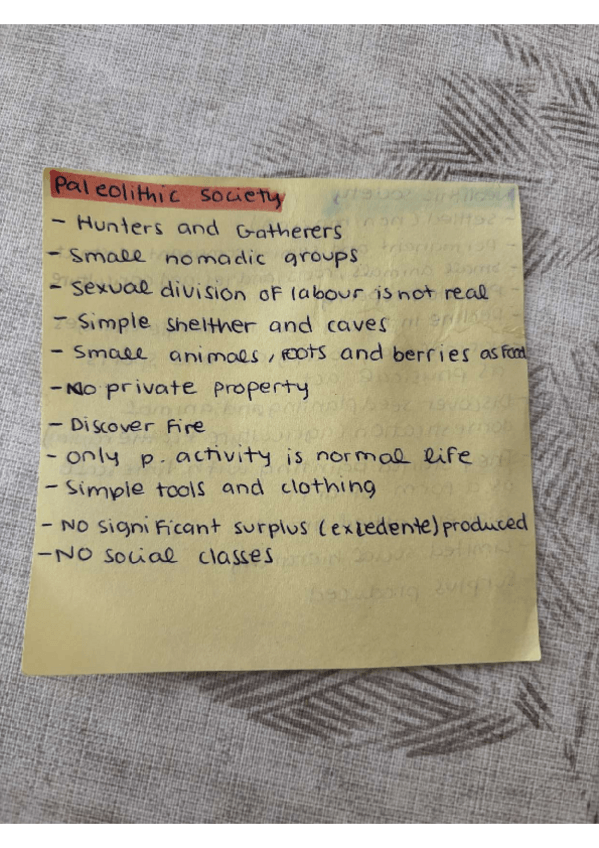 Paleolithic society
- Hunters and Gatherers
- Small nomadic groups
- Sexual division of labour is not real
- Simple shelther and caves
- Small animals, roots and berries as Food
- No private property
- Discover Fire
- only p. activity is normal life
- Simple tools and clothing
- NO significant surplus (excedente) produced
- NO social classes